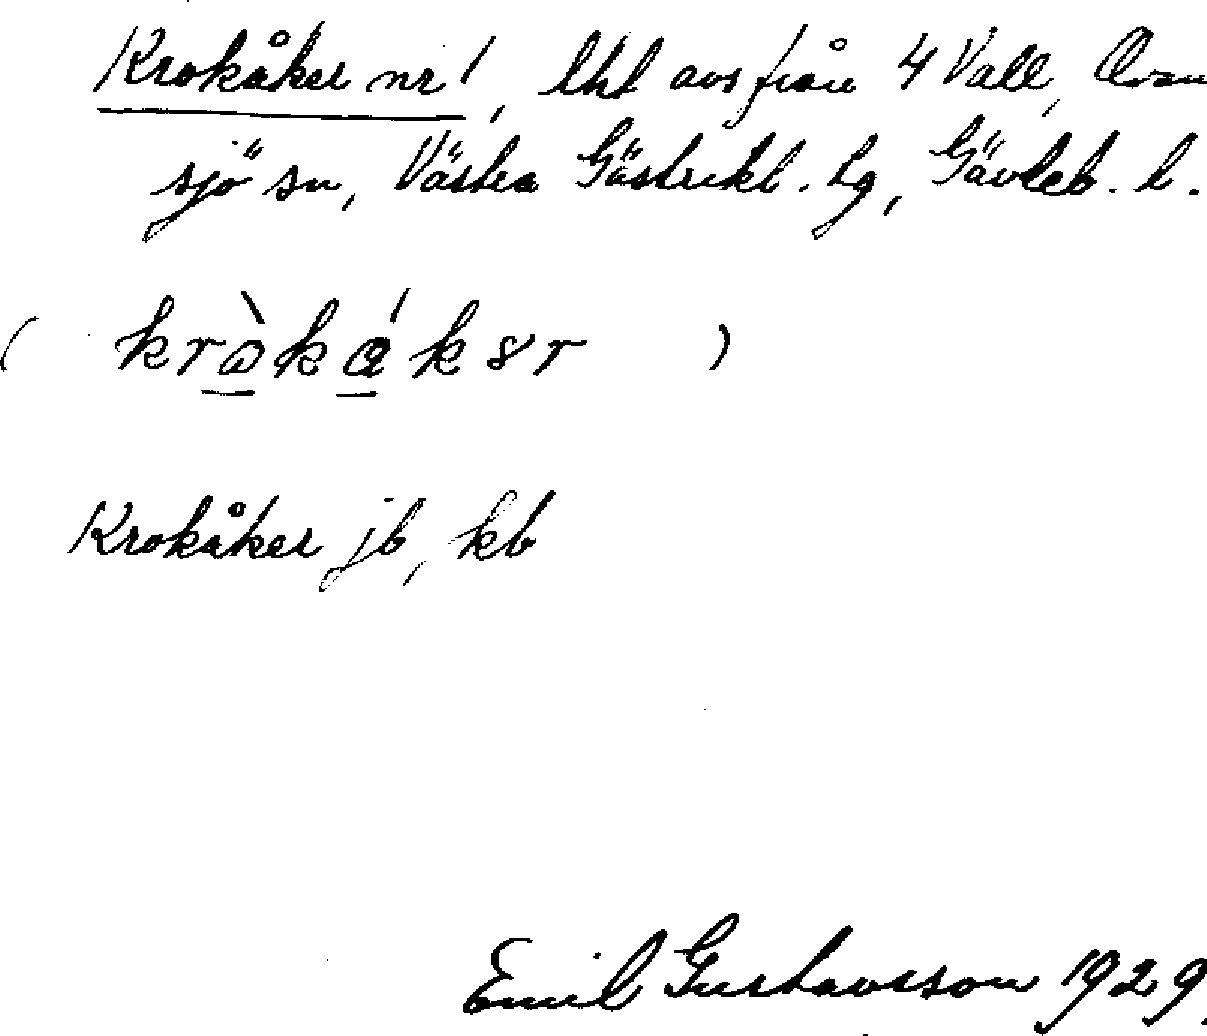 Krokåker nr 1, lht avs från 4 Vall, Ovan
sjö sn, Västra Gästrikl. hg, Gävleb. l.
( kròkákər )
Krokåker jb, kb
Emil Gustavsson 1929.